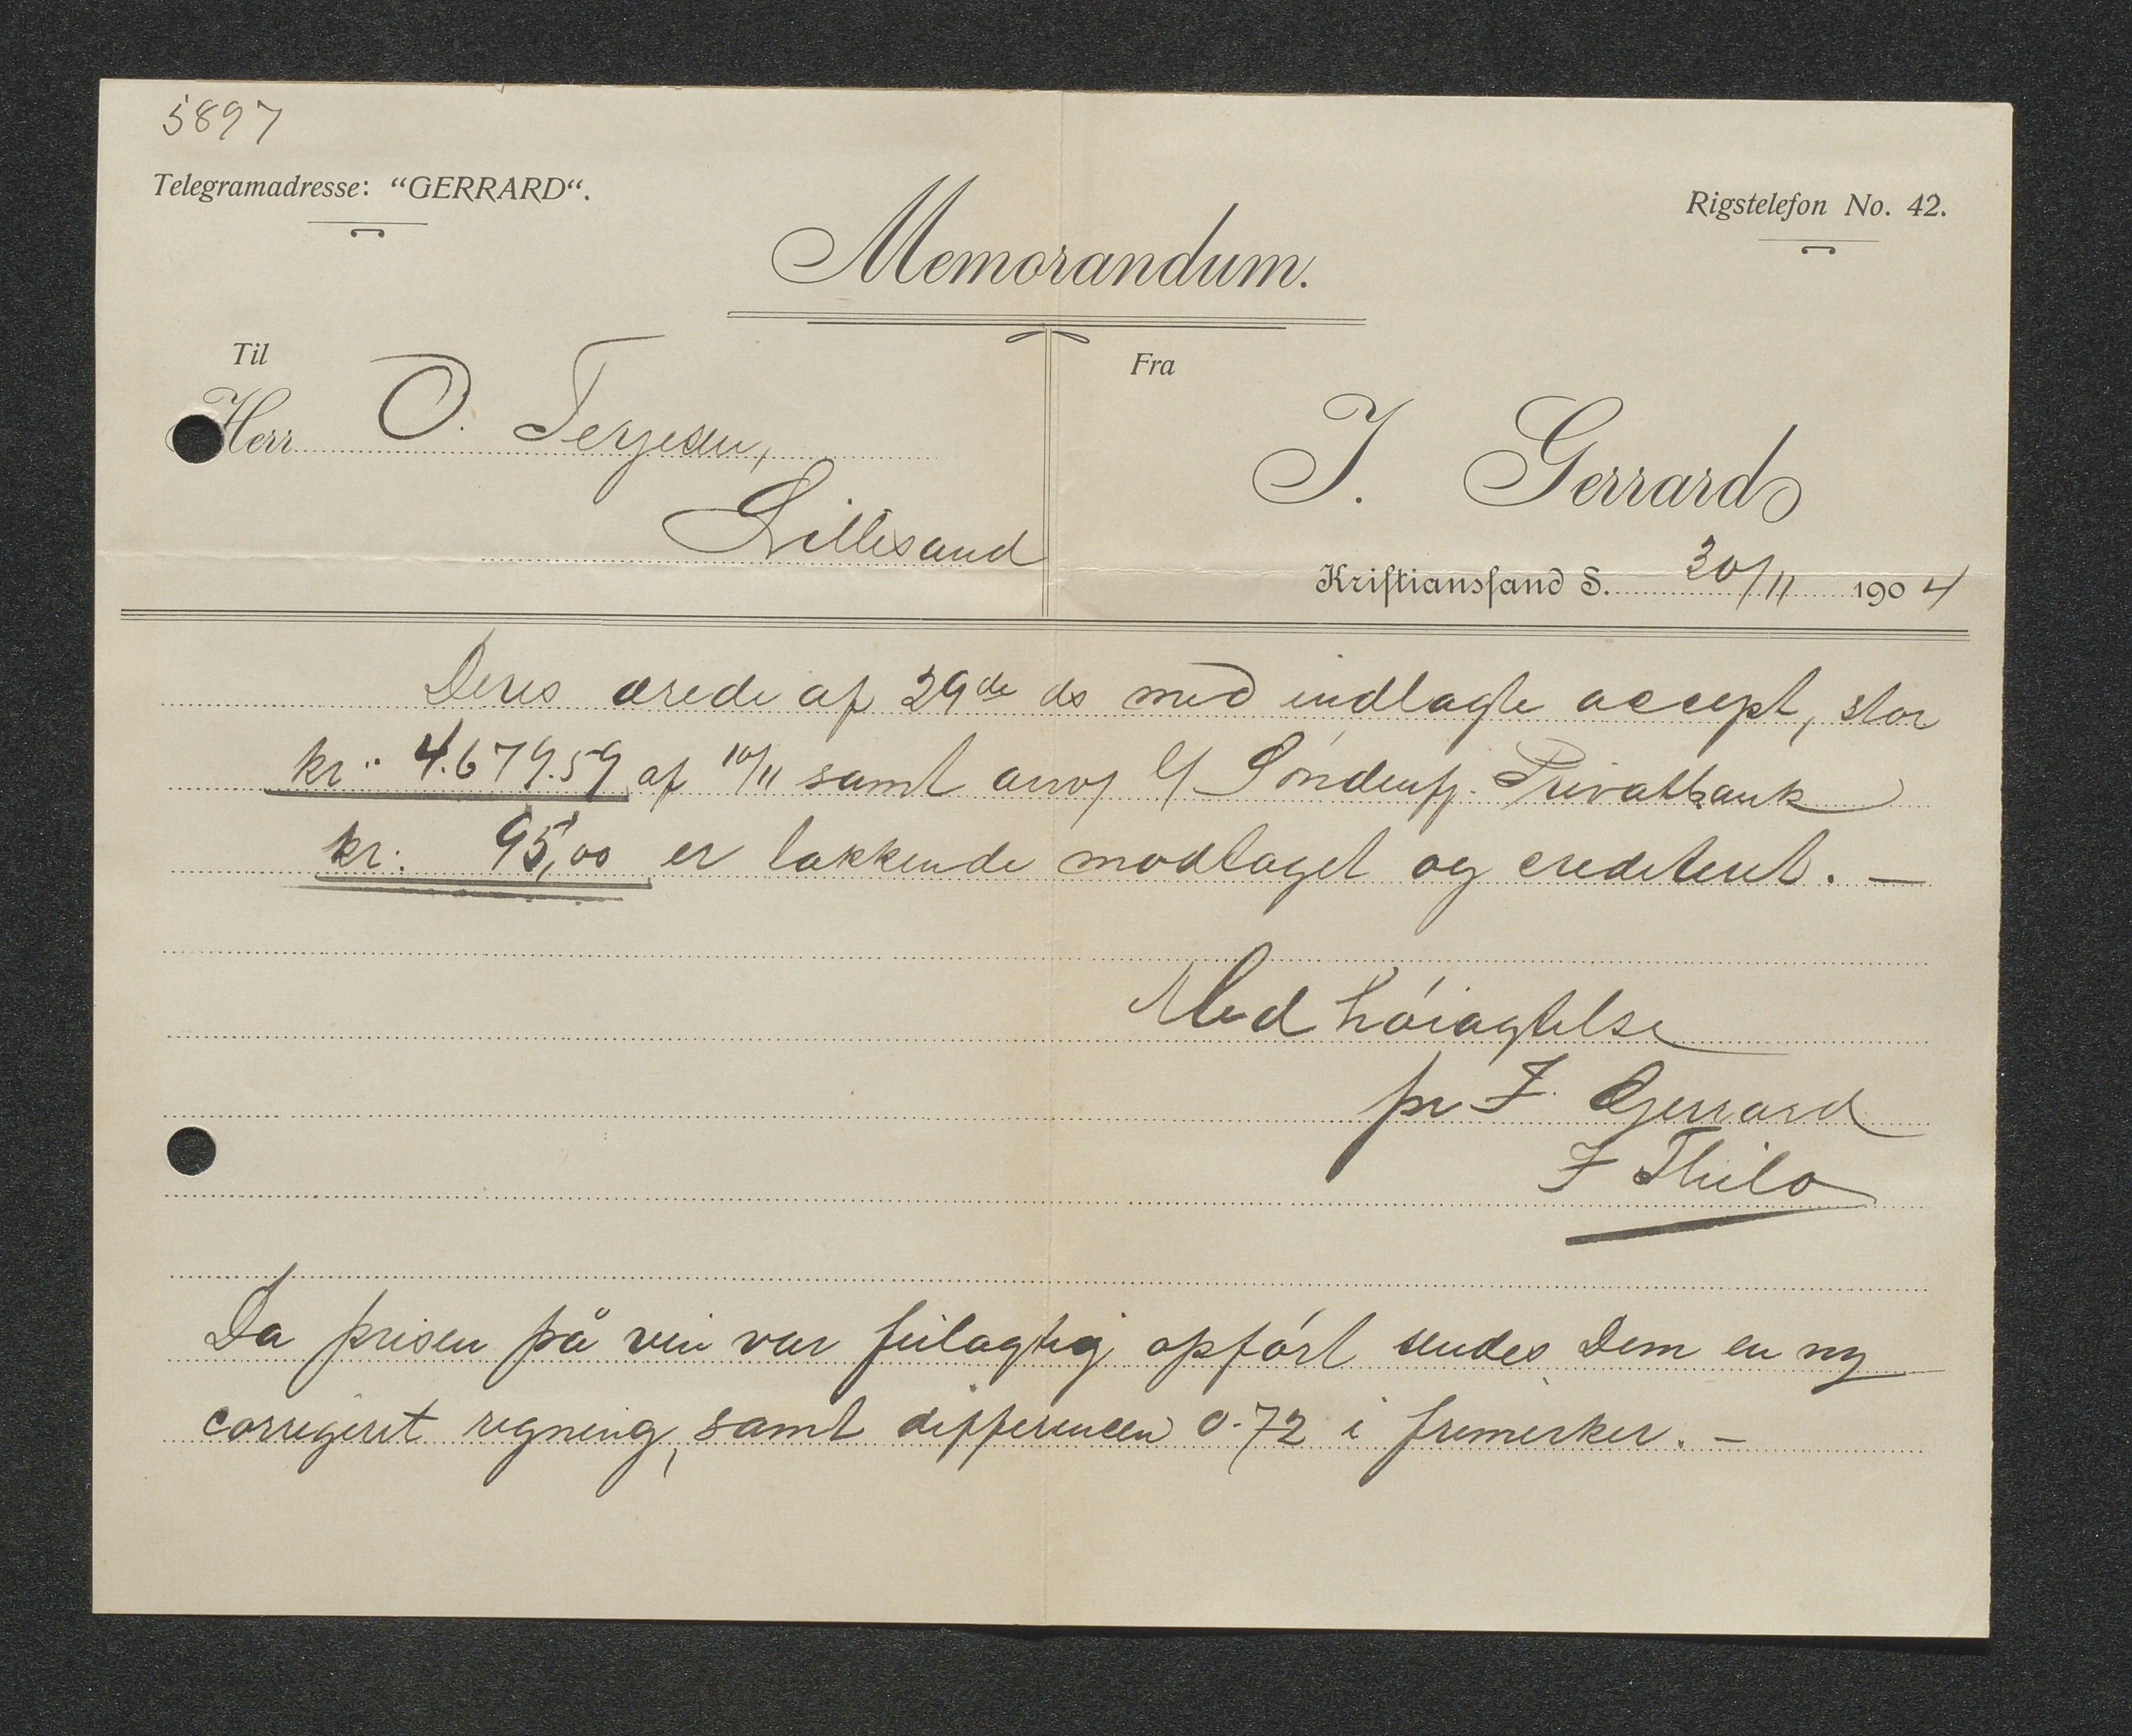 5897
Telegramadresse: “GERRARD“.
Rigstelefon No. 42.
Memorandum.
Til
Fra
Herr O. Terjesen,
Lillesand
J. Gerrard
Kristianssand S. 30/11 1904
Deres ærede af 29de ds med indlagte accept, stor
kr. 4.679.59 af 10/11 samt anv/ Søndenfj. Privatbank
kr. 95,00 er takkende modtaget og crediteret. —
Med høiagtelse
pr J. Gerrard
J Thilo
Da prisen på vin var feilagtig opført sendes Dem en ny
corrigeret regning, samt differencen 0.72 i frimerker. —